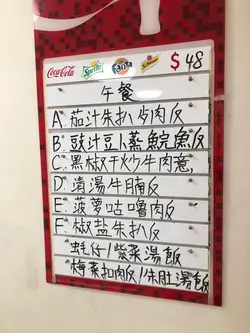 Coca-Cola Sprite Fanta Schweppes $48
午餐
A: 茄汁朱扒火肉反
B: 豉汁豆卜蒸鯇魚反
C: 黑椒干炒牛肉意,
D: 清湯牛腩反
E: 菠萝咕嚕肉反
F: 椒盐朱扒反
蚝仔/紫菜湯飯
梅菜扣肉反/朱肚湯飯